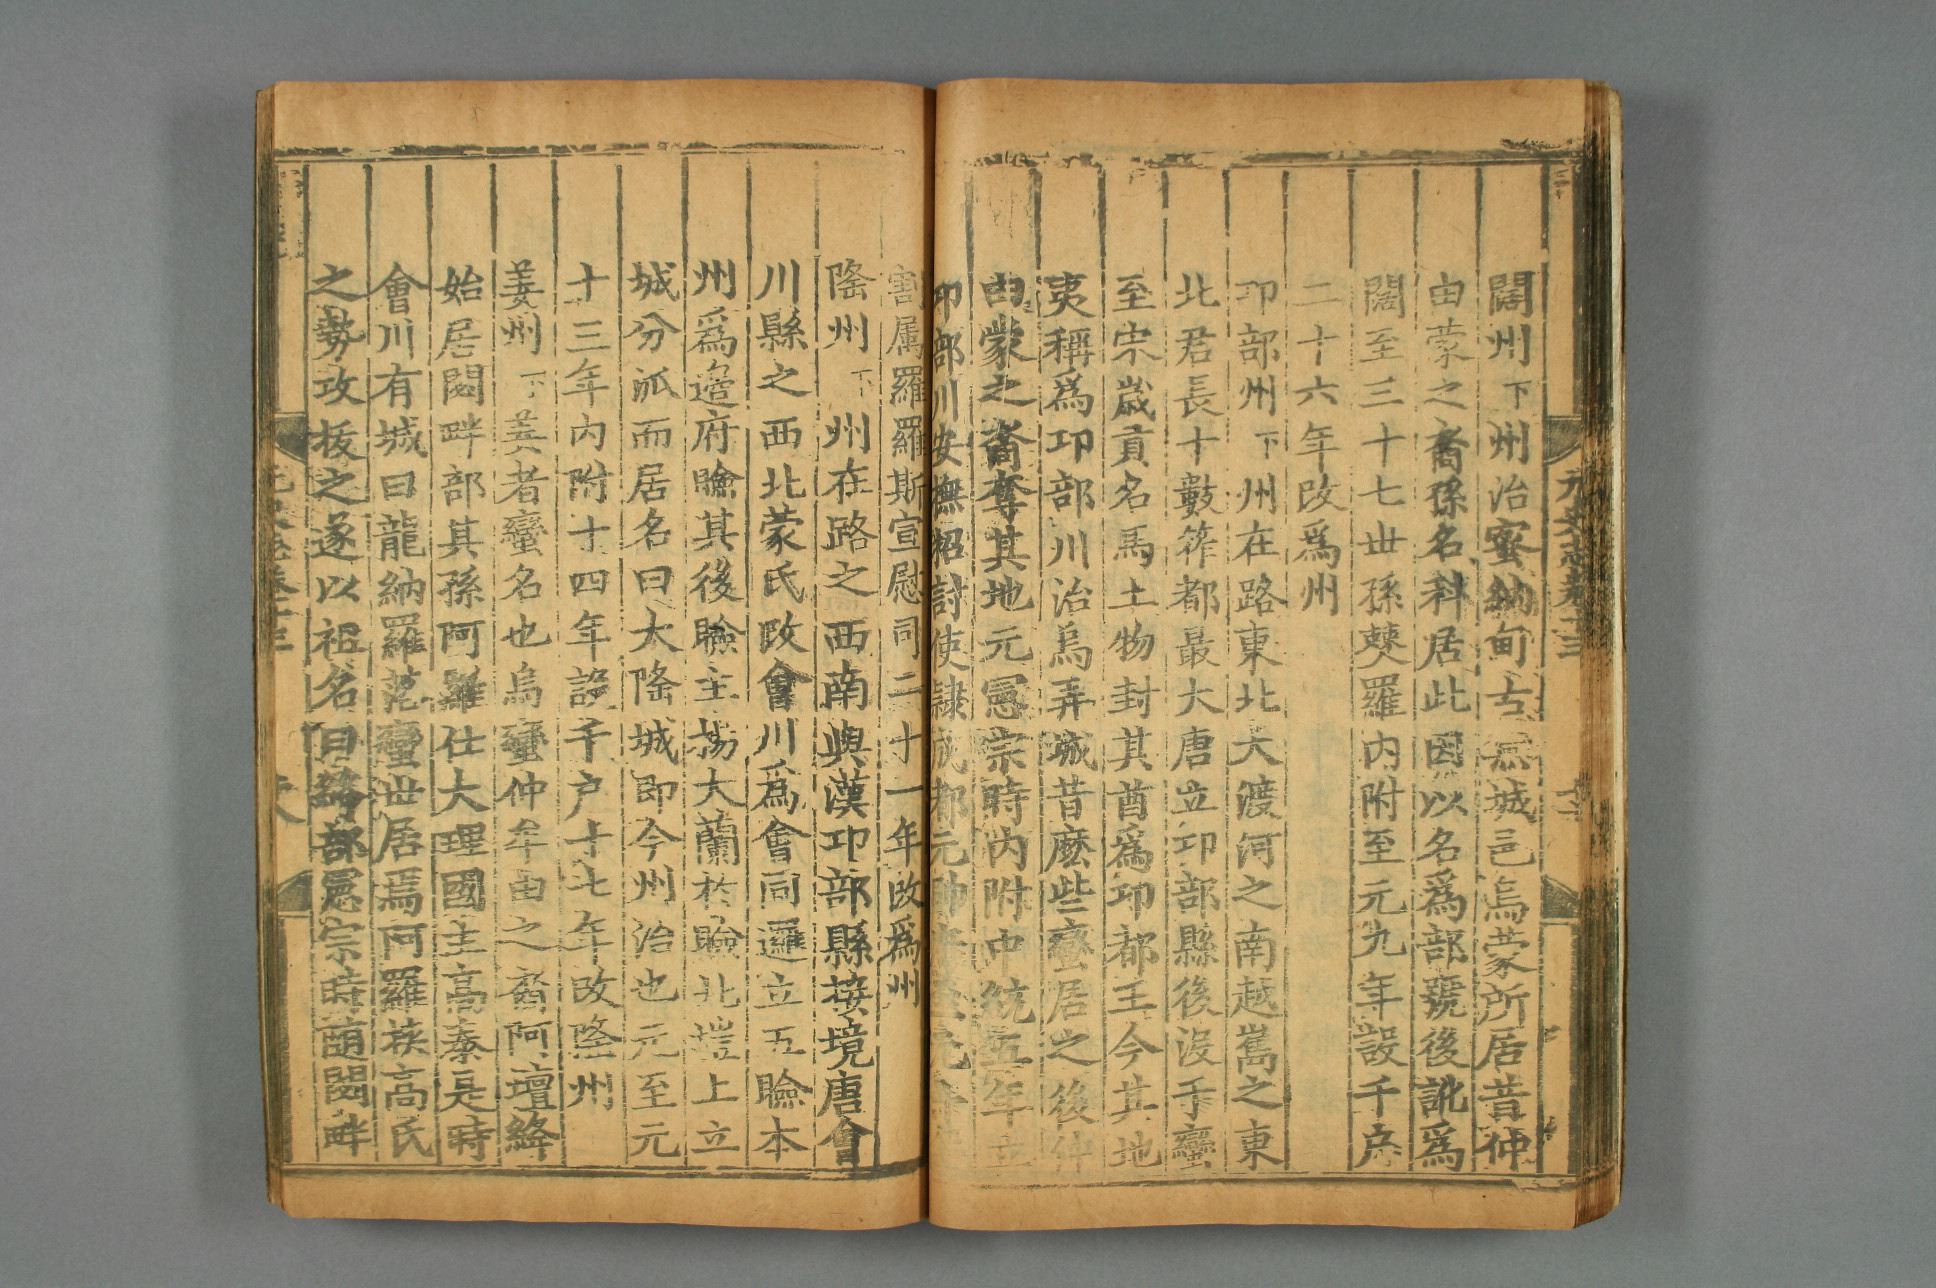 闊州下州治宻納甸古無城邑烏蒙所居昔仲
由蒙之裔孫名科居此因以名爲部號後訛爲
闊至三十七世孫㚇羅内附至元九年設千户
二十六年改爲州
邛部州下州在路東北大渡河之南越嶲之東
北君長十數筰都最大唐立邛部縣後没于蠻
至宋歲貢名馬土物封其酋爲邛都王今其地
夷稱爲邛部川治烏弄城昔麽些蠻居之後仲
由蒙之裔奪其地元憲宗時内附中統五年立
邛部川安撫招討使隷成都元帥府至元
割属羅羅斯宣慰司二十一年改爲州
隆州下州在路之西南與漢邛部縣接境唐會
川縣之西北蒙氏改會川爲會同邏立五瞼本
州爲邊府瞼其後瞼主揚大蘭於瞼北塏上立
城分派而居名曰大隆城即今州治也元至元
十三年内附十四年設千户十七年改隆州
姜州下姜者蠻名也烏蠻仲牟由之裔阿壇絳
始居閟畔部其孫阿羅仕大理國主高泰是時
會川有城曰龍納羅落蠻世居焉阿羅挾高氏
之勢攻拔之遂以祖名曰絳部憲宗時隨閟畔
元史志卷十三